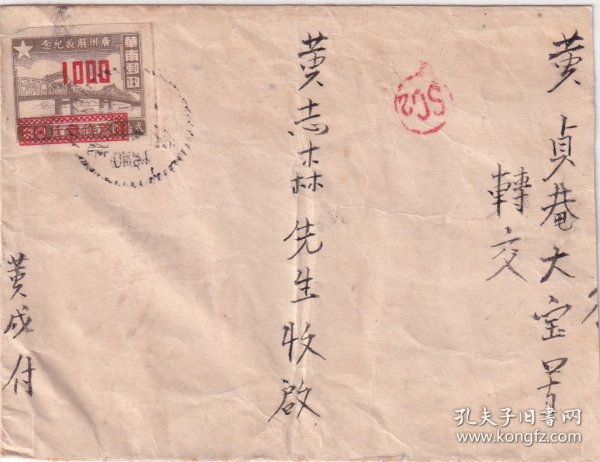 黄貞菴大宝号
轉交
黄志森先生收啟
黄成付
華南郵政
廣州解放紀念
1000
SC2
孔夫子旧書网
www.kongfz.com